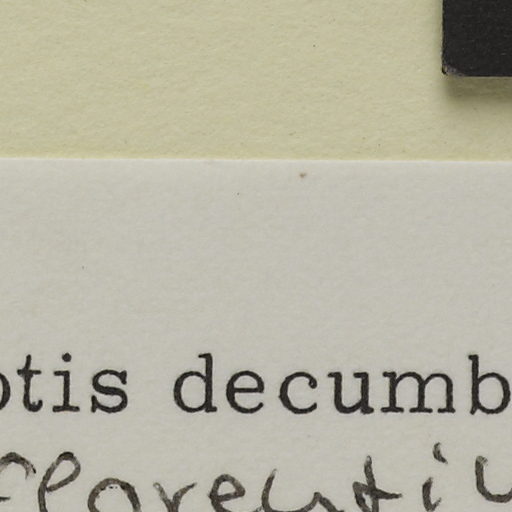 otis decumb
florentiu